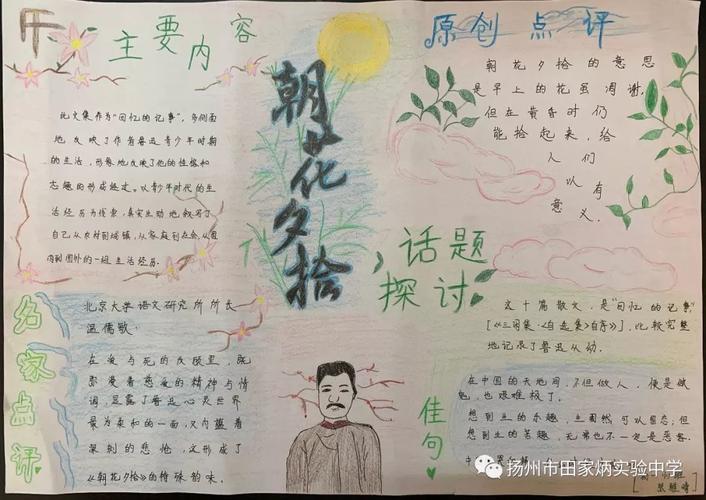 主要内容
此文集作为"回忆的记事",多侧面
地反映了作者鲁迅青少年时期
的生活,形象地反映了他的性格和
志趣的形成经过。以青少年时代的生
活经历为线索,真实生动地叙写了
自己从农村到城镇,从家庭到社会,从国
内到国外的一组生活经历.
朝花夕拾
原创点评
朝花夕拾的意思
是早上的花虽凋谢,
但在黄昏时们
能捡起来,给
人们
以有
意义.
话题
探讨
这十篇散文,是"回忆的记事"
[《三闲集·自选集》自序》],比较完整
地记录了鲁迅从动.
名家点评
北京大学语文研究所所长
温儒敏:
在爱与死的反顾里,既
弥漫着慈爱的精神与情
调,显露了鲁迅心灵世界
最为柔和的一面,又内蕴着
深刻的悲怆,交形成了
《朝花夕拾》的特殊韵味。
佳句
在中国的天地间,不但做人,便是做
鬼,也艰难极了.
想到生的乐趣,生固然可以留恋;但
想到生的苦趣,无常也不一定是恶客.
扬州市田家炳实验中学